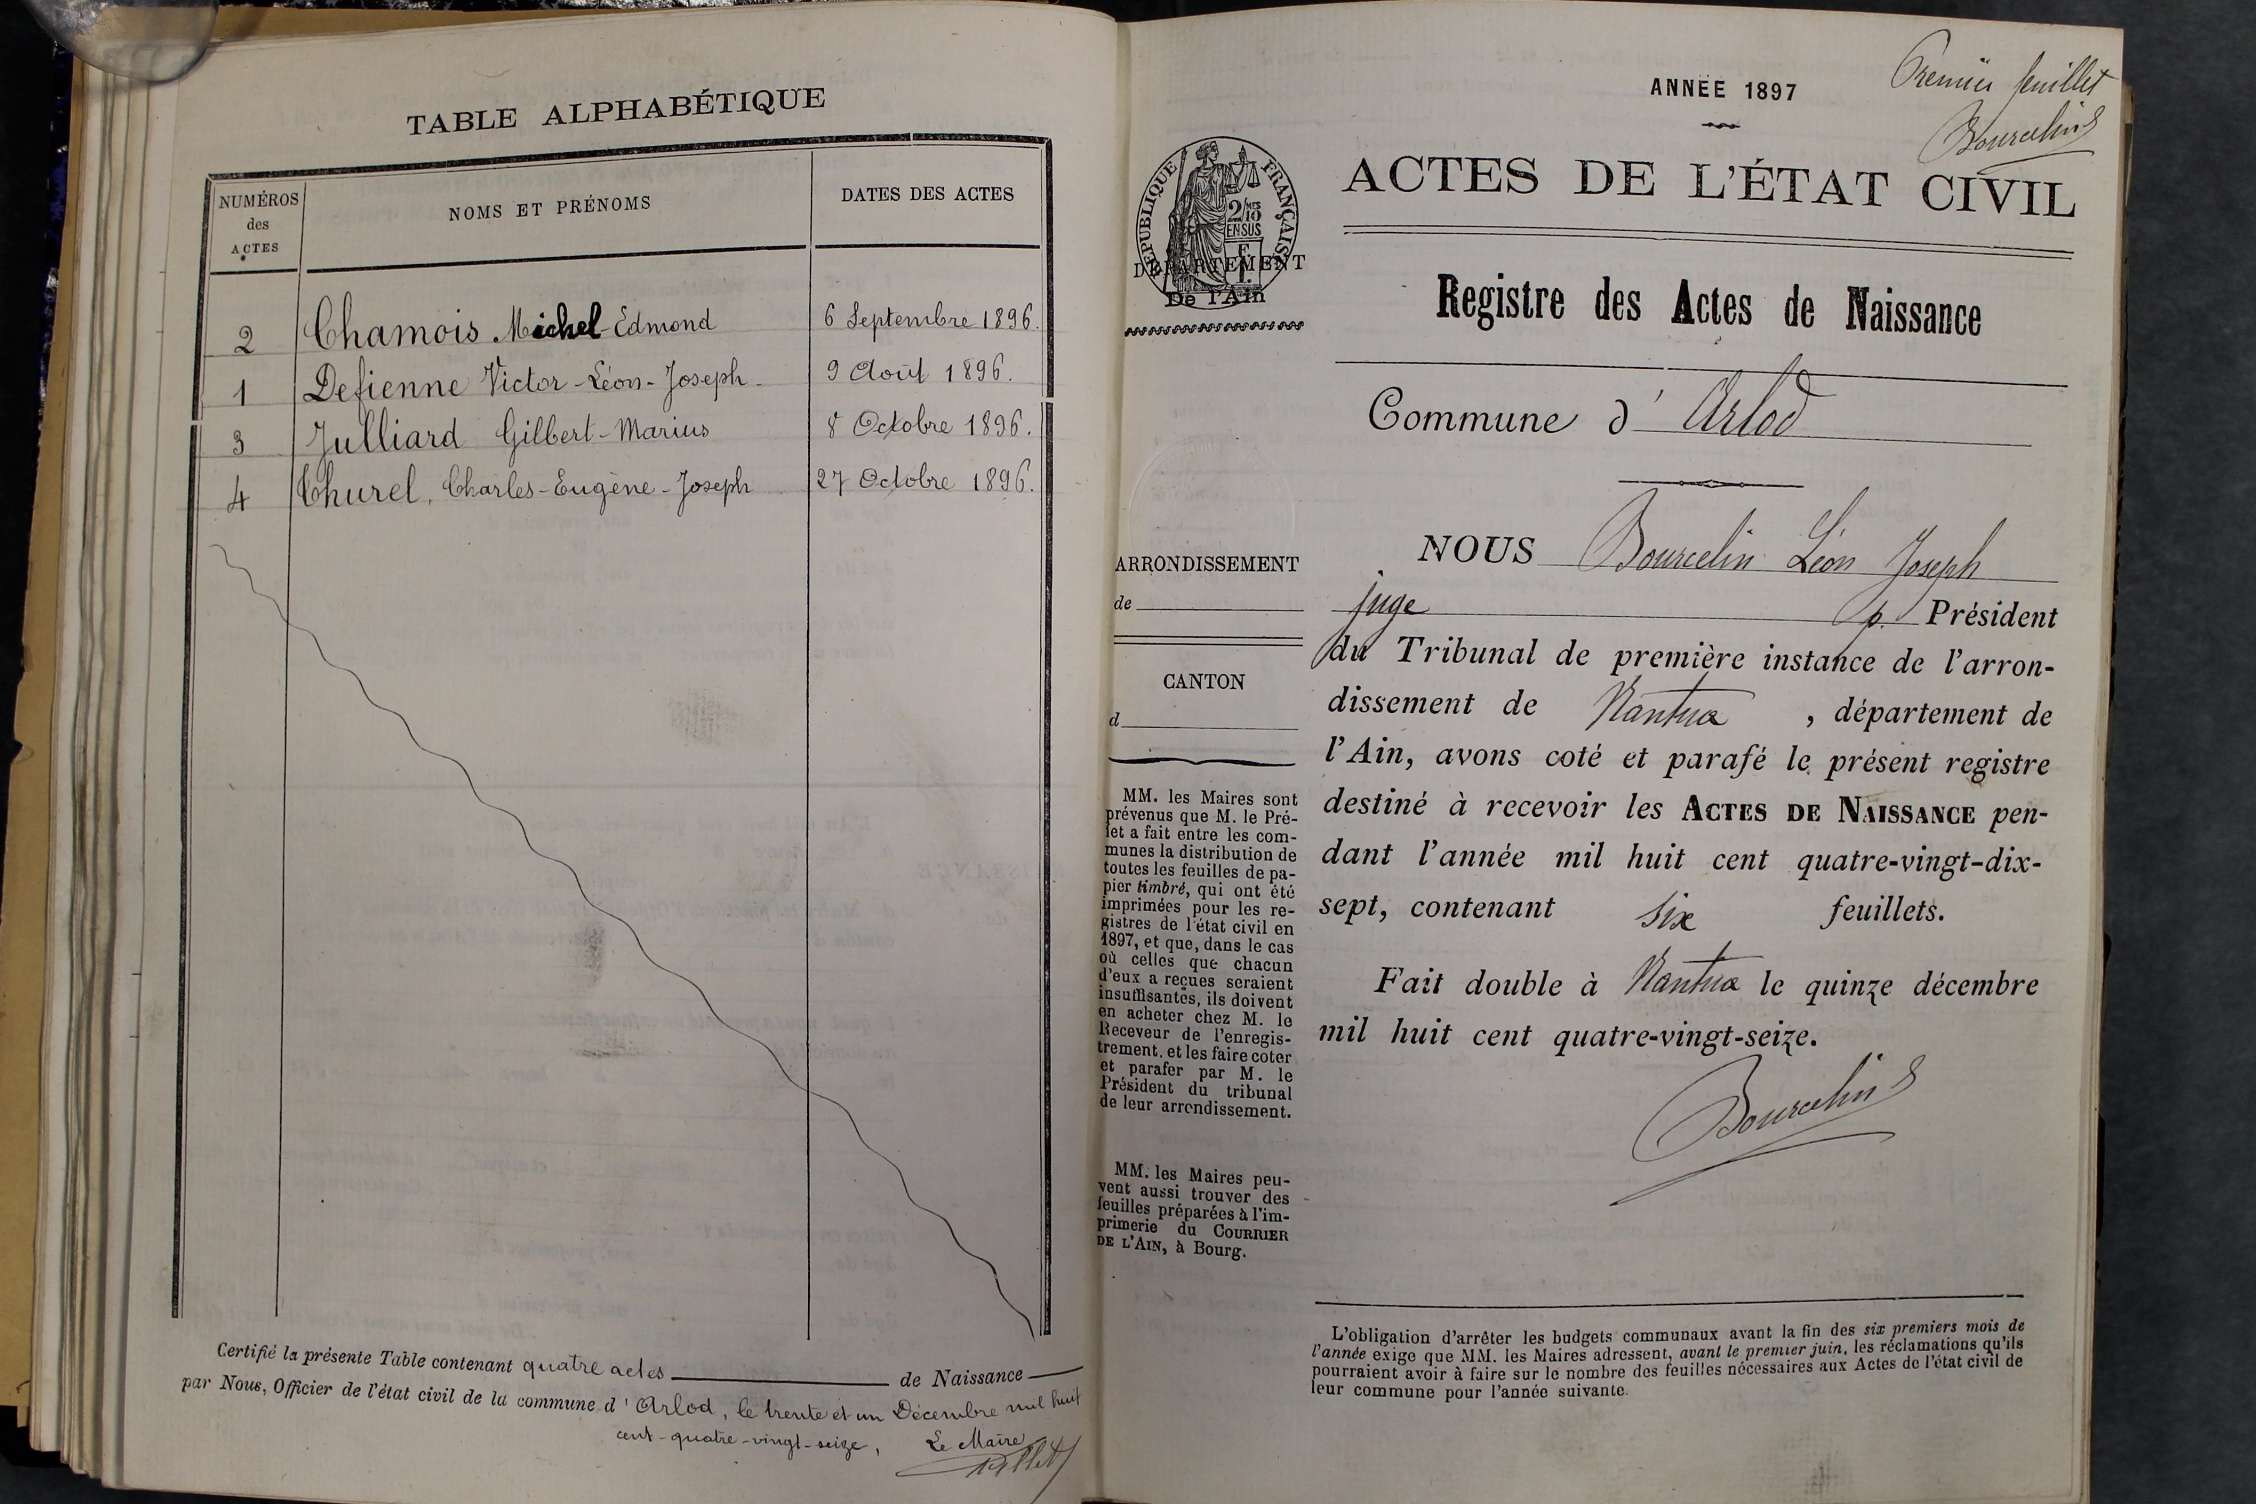 TABLE ALPHABÉTIQUE
NUMÉROS
des
ACTES
NOMS ET PRÉNOMS
DATES DES ACTES
2 Chamois Michel-Edmond 6 Septembre 1896.
1 Defienne Victor-Léon-Joseph- 9 Août 1896.
3 Julliard Gilbert-Marius 8 Octobre 1896.
4 Churel, Charles-Eugène-Joseph 27 Octobre 1896.
Certifié la présente Table contenant quatre actes de Naissance
par Nous, Officier de l'état civil de la commune d'Arlod, le trente et un Décembre mil huit
cent-quatre-vingt-seize, Le Maire
Premier feuillet
Bourcelin
ANNÉE 1897
RÉPUBLIQUE FRANÇAISE
2/10
EN SUS
DÉPARTEMENT
De l'Ain
ACTES DE L'ÉTAT CIVIL
Registre des Actes de Naissance
Commune d'Arlod
ARRONDISSEMENT
de
CANTON
d
MM. les Maires sont
prévenus que M. le Pré-
fet a fait entre les com-
munes la distribution de
toutes les feuilles de pa-
pier timbré, qui ont été
imprimées pour les re-
gistres de l'état civil en
1897, et que, dans le cas
où celles que chacun
d'eux a reçues seraient
insuffisantes, ils doivent
en acheter chez M. le
Receveur de l'enregis-
trement, et les faire coter
et parafer par M. le
Président du tribunal
de leur arrondissement.
MM. les Maires peu-
vent aussi trouver des
feuilles préparées à l'im-
primerie du COURRIER
DE L'AIN, à Bourg.
NOUS Bourcelin Léon Joseph
juge p. Président
du Tribunal de première instance de l'arron-
dissement de Nantua, département de
l'Ain, avons coté et parafé le présent registre
destiné à recevoir les ACTES DE NAISSANCE pen-
dant l'année mil huit cent quatre-vingt-dix-
sept, contenant six feuillets.
Fait double à Nantua le quinze décembre
mil huit cent quatre-vingt-seize.
Bourcelin
L'obligation d'arrêter les budgets communaux avant la fin des six premiers mois de
l'année exige que MM. les Maires adressent, avant le premier juin, les réclamations qu'ils
pourraient avoir à faire sur le nombre des feuilles nécessaires aux Actes de l'état civil de
leur commune pour l'année suivante.